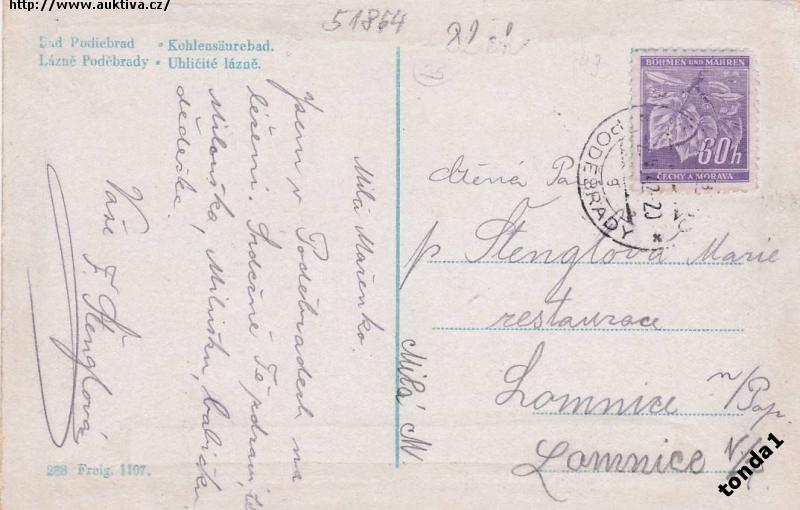 http://www.auktiva.cz/
51864
Bad Podiebrad • Kohlensäurebad.
Lázně Poděbrady • Uhličité lázně.
Milá Mařenko.
jsem v Poděbradech na
léčení. Srdečně Tě pozdravuji
Milouška, Milušku, babičku
dědečka.
Vaše F. Štenglová
288 Freig. 1107.
Milá M.
BÖHMEN UND MÄHREN
60h
ČECHY A MORAVA
PODĚBRADY
Ctěná Paní
p Štenglová Marie
restaurace
Lomnice n/Pop.
Lomnice
tonda1